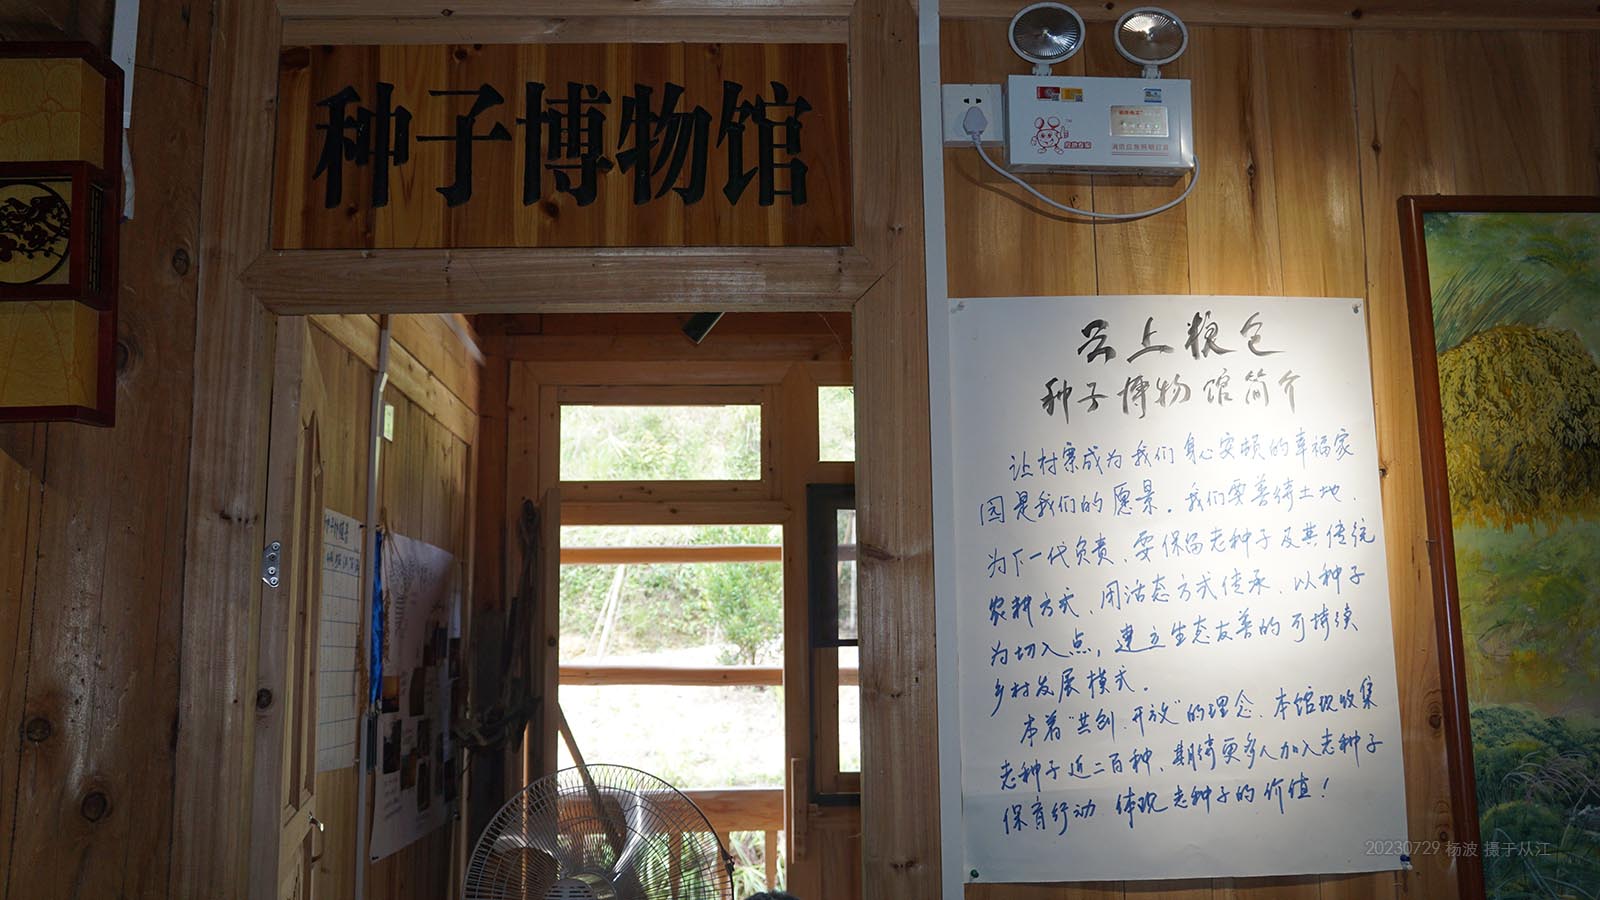 种子博物馆
云上粮仓
种子博物馆简介
让村寨成为我们身心安顿的幸福家
园是我们的愿景。我们要善待土地、
为下一代负责、要保留老种子及其传统
农耕方式、用活态方式传承、以种子
为切入点,建立生态友善的可持续
乡村发展模式。
本着“共创、开放”的理念、本馆现收集
老种子近二百种、期待更多人加入老种子
保育行动 体现老种子的价值!
消防应急照明灯具
20230729 杨波 摄于从江